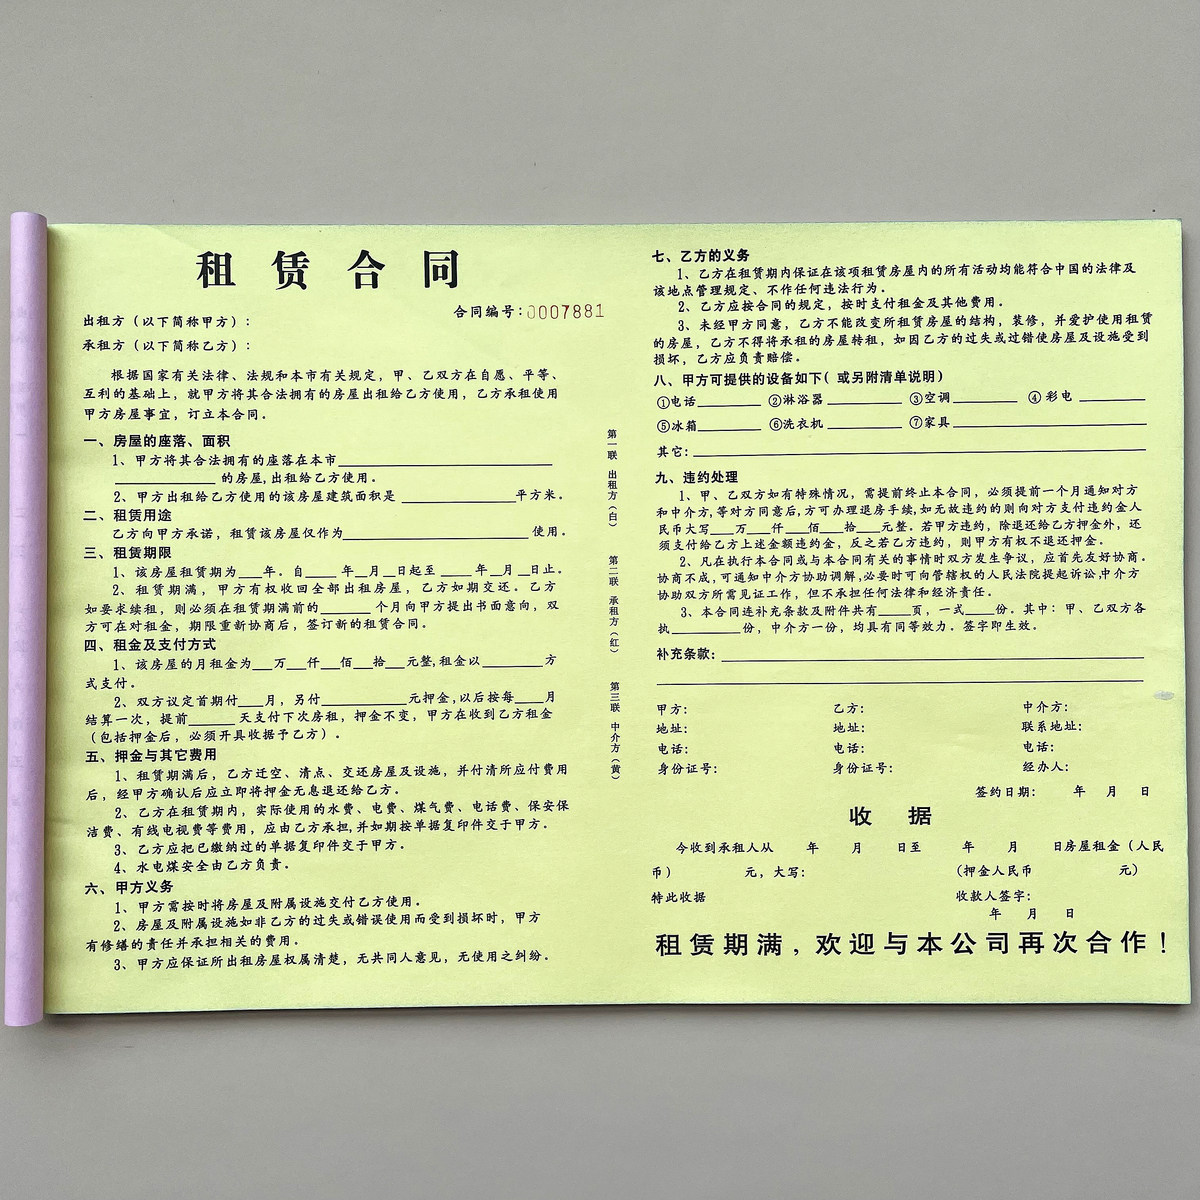 租赁合同
合同编号：0007881
出租方（以下简称甲方）：
承租方（以下简称乙方）：
根据国家有关法律、法规和本市有关规定，甲、乙双方在自愿、平等、
互利的基础上，就甲方将其合法拥有的房屋出租给乙方使用，乙方承租使用
甲方房屋事宜，订立本合同。
一、房屋的座落、面积
1、甲方将其合法拥有的座落在本市________
________的房屋,出租给乙方使用．
2、甲方出租给乙方使用的该房屋建筑面积是________平方米．
二、租赁用途
乙方向甲方承诺，租赁该房屋仅作为________使用．
三、租赁期限
1、该房屋租赁期为___年．自____年__月__日起至____年__月__日止．
2、租赁期满，甲方有权收回全部出租房屋，乙方如期交还．乙方
如要求续租，则必须在租赁期满前的_____个月向甲方提出书面意向，双
方可在对租金，期限重新协商后，签订新的租赁合同．
四、租金及支付方式
1、该房屋的月租金为__万__仟__佰__拾__元整,租金以______方
式支付．
2、双方议定首期付___月，另付________元押金,以后按每___月
结算一次，提前_____天支付下次房租，押金不变，甲方在收到乙方租金
（包括押金后，必须开具收据予乙方）．
五、押金与其它费用
1、租赁期满后，乙方迁空、清点、交还房屋及设施，并付清所应付费用
后，经甲方确认后应立即将押金无息退还给乙方．
2、乙方在租赁期内，实际使用的水费、电费、煤气费、电话费、保安保
洁费、有线电视费等费用，应由乙方承担,并如期按单据复印件交于甲方．
3、乙方应把已缴纳过的单据复印件交于甲方．
4、水电煤安全由乙方负责．
六、甲方义务
1、甲方需按时将房屋及附属设施交付乙方使用．
2、房屋及附属设施如非乙方的过失或错误使用而受到损坏时，甲方
有修缮的责任并承担相关的费用．
3、甲方应保证所出租房屋权属清楚，无共同人意见，无使用之纠纷．
第一联 出租方（白） 第二联 承租方（红） 第三联 中介方（黄）
七、乙方的义务
1、乙方在租赁期内保证在该项租赁房屋内的所有活动均能符合中国的法律及
该地点管理规定、不作任何违法行为．
2、乙方应按合同的规定，按时支付租金及其他费用．
3、未经甲方同意，乙方不能改变所租赁房屋的结构，装修，并爱护使用租赁
的房屋，乙方不得将承租的房屋转租，如因乙方的过失或过错使房屋及设施受到
损坏，乙方应负责赔偿．
八、甲方可提供的设备如下( 或另附清单说明)
①电话______ ②淋浴器______ ③空调______ ④ 彩电 ______
⑤冰箱______ ⑥洗衣机______ ⑦家具________
其它：________
九、违约处理
1、甲、乙双方如有特殊情况，需提前终止本合同，必须提前一个月通知对方
和中介方,等对方同意后,方可办理退房手续,如无故违约的则向对方支付违约金人
民币大写___万__仟__佰__拾__元整．若甲方违约，除退还给乙方押金外，还
须支付给乙方上述金额违约金，反之若乙方违约，则甲方有权不退还押金．
2、凡在执行本合同或与本合同有关的事情时双方发生争议，应首先友好协商．
协商不成,可通知中介方协助调解,必要时可向管辖权的人民法院提起诉讼,中介方
协助双方所需见证工作，但不承担任何法律和经济责任．
3、本合同连补充条款及附件共有____页，一式___份．其中：甲、乙双方各
执________份，中介方一份，均具有同等效力．签字即生效．
补充条款：________
甲方： 乙方： 中介方：
地址： 地址： 联系地址：
电话： 电话： 电话：
身份证号： 身份证号： 经办人：
签约日期： 年 月 日
收 据
今收到承租人从 年 月 日至 年 月 日房屋租金（人民
币） 元，大写： （押金人民币 元）
特此收据 收款人签字：
年 月 日
租赁期满，欢迎与本公司再次合作！